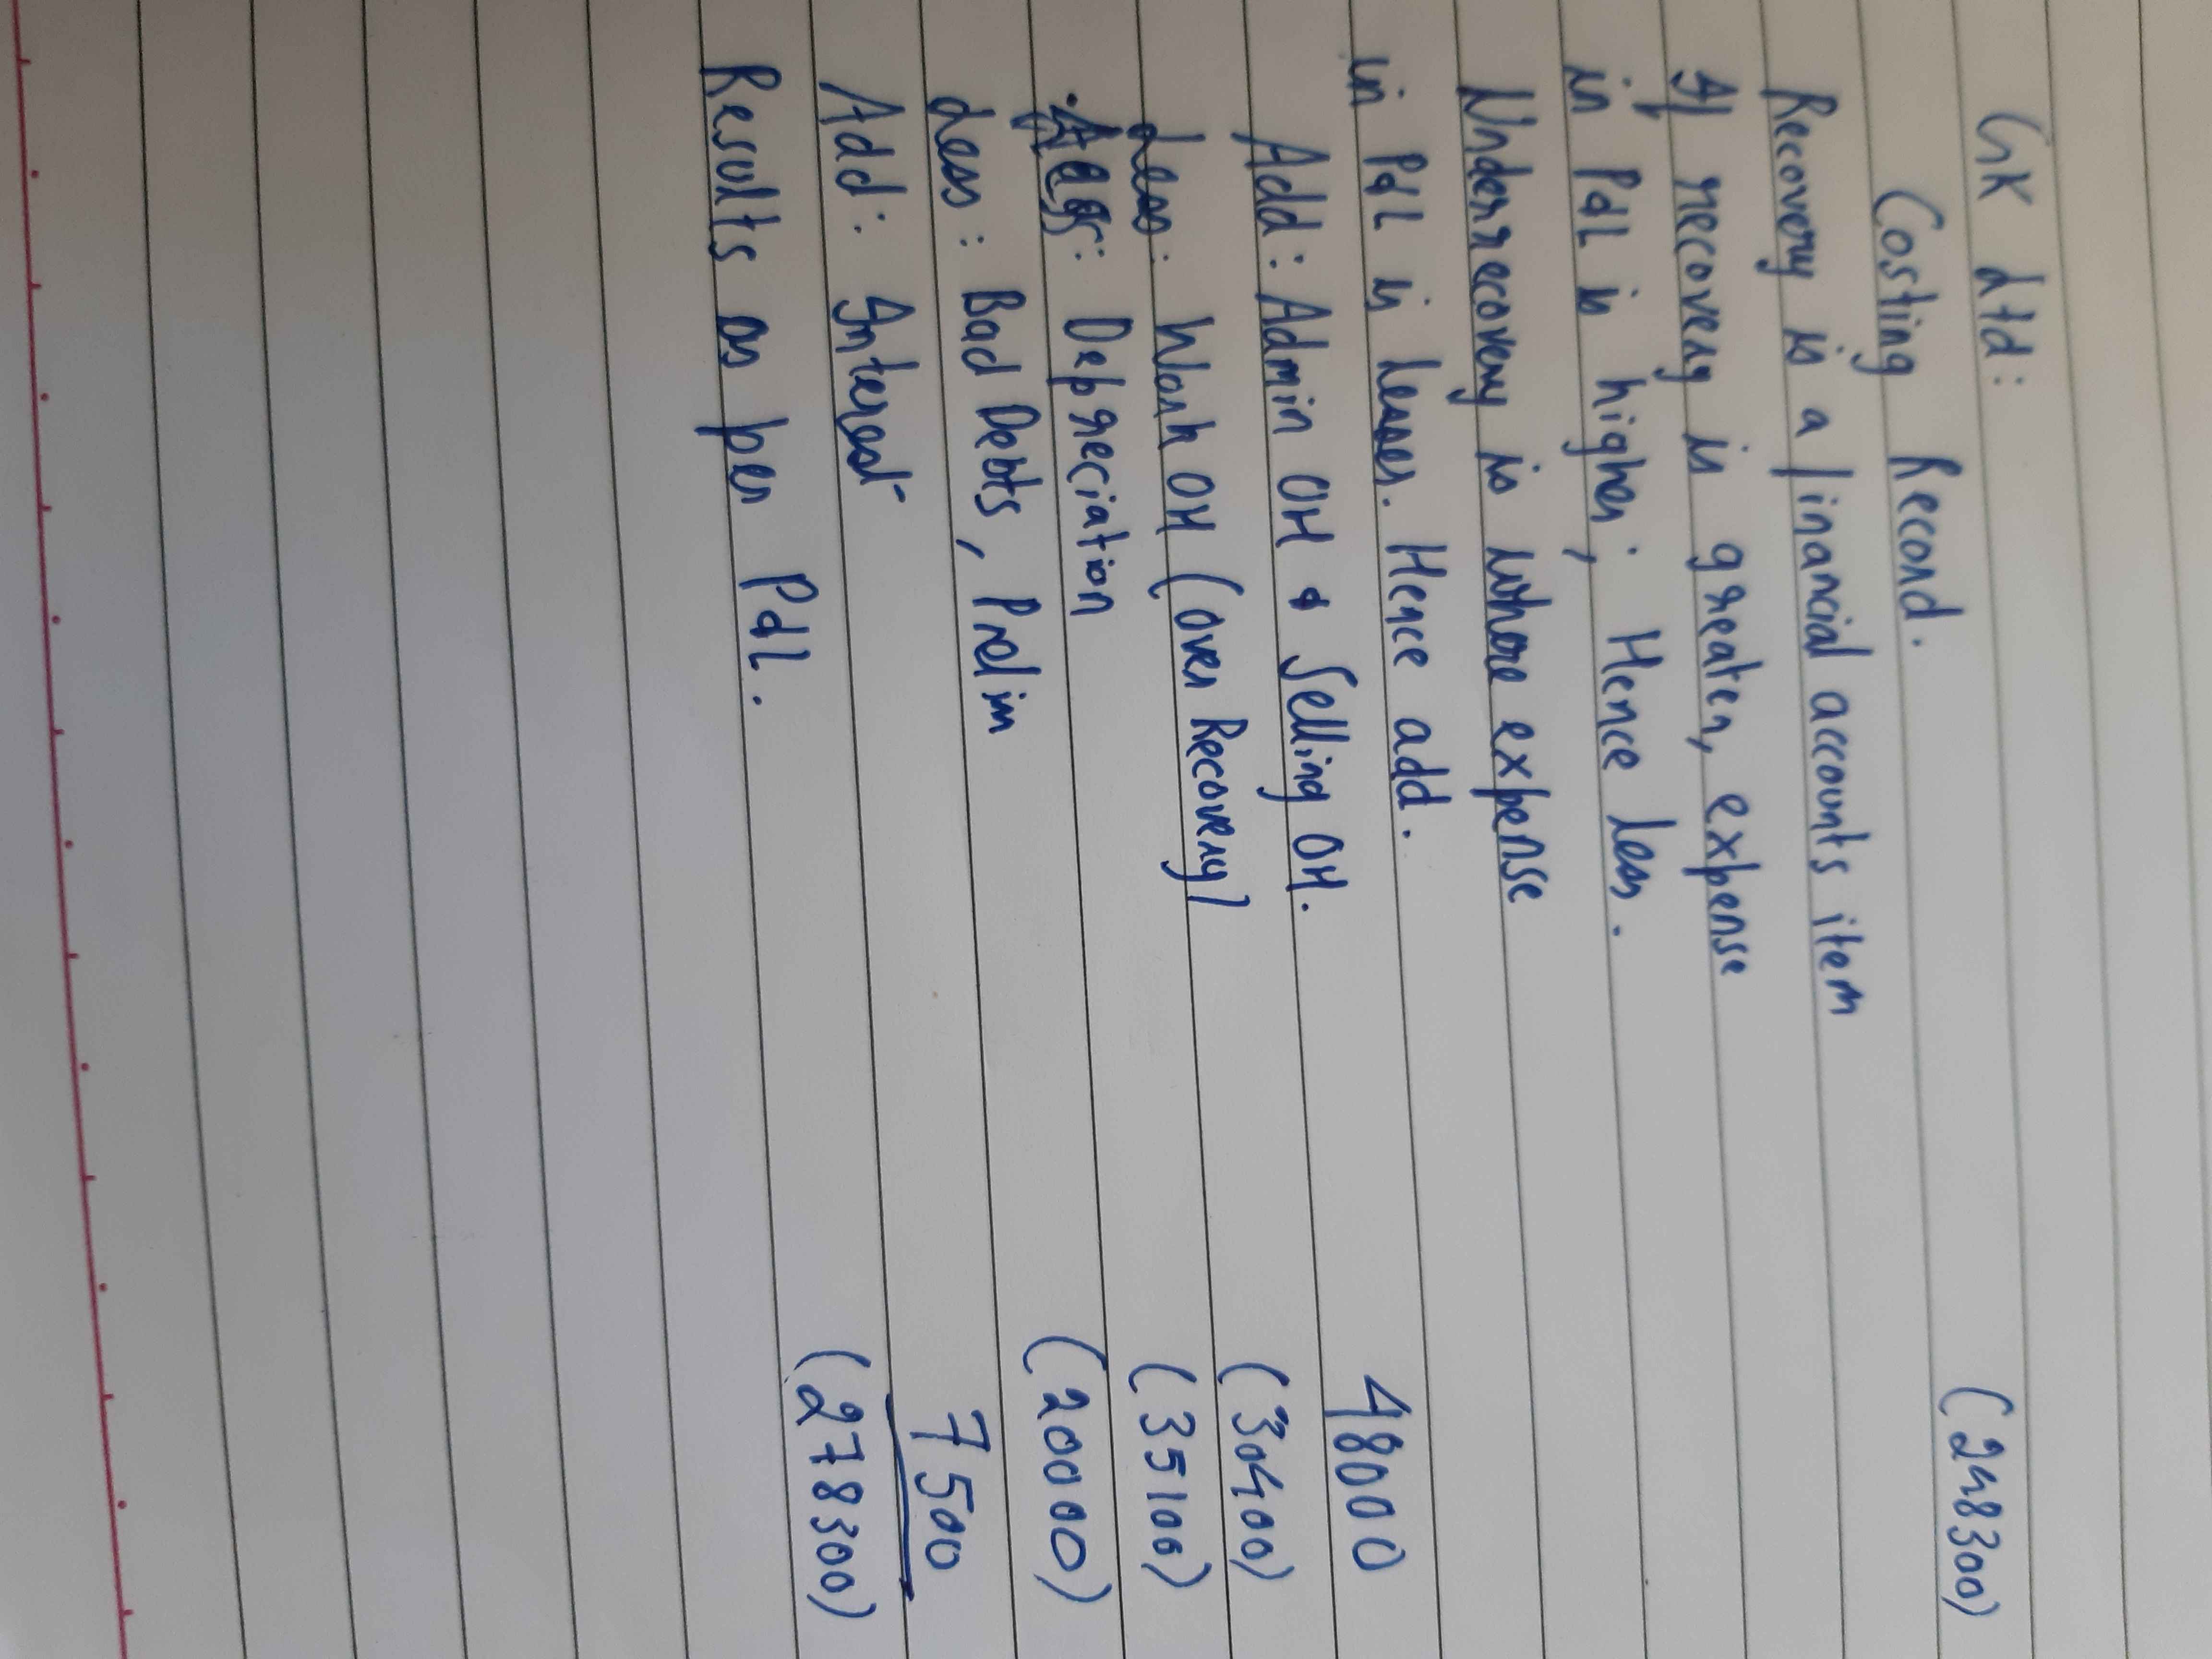 GK Ltd:
Costing Record. (248300)
Recovery is a financial accounts item
If recovery is greater, expense
in P&L is higher; Hence less.
Underrecovery is where expense
in P&L is lesser. Hence add.
Add: Admin OH & Selling OH. 48000
Less: Work OH (over Recovery) (30400)
Less: Depreciation (35100)
Less: Bad Debts, Prelim (20000)
Add: Interest 7500
Results as per P&L. (278300)